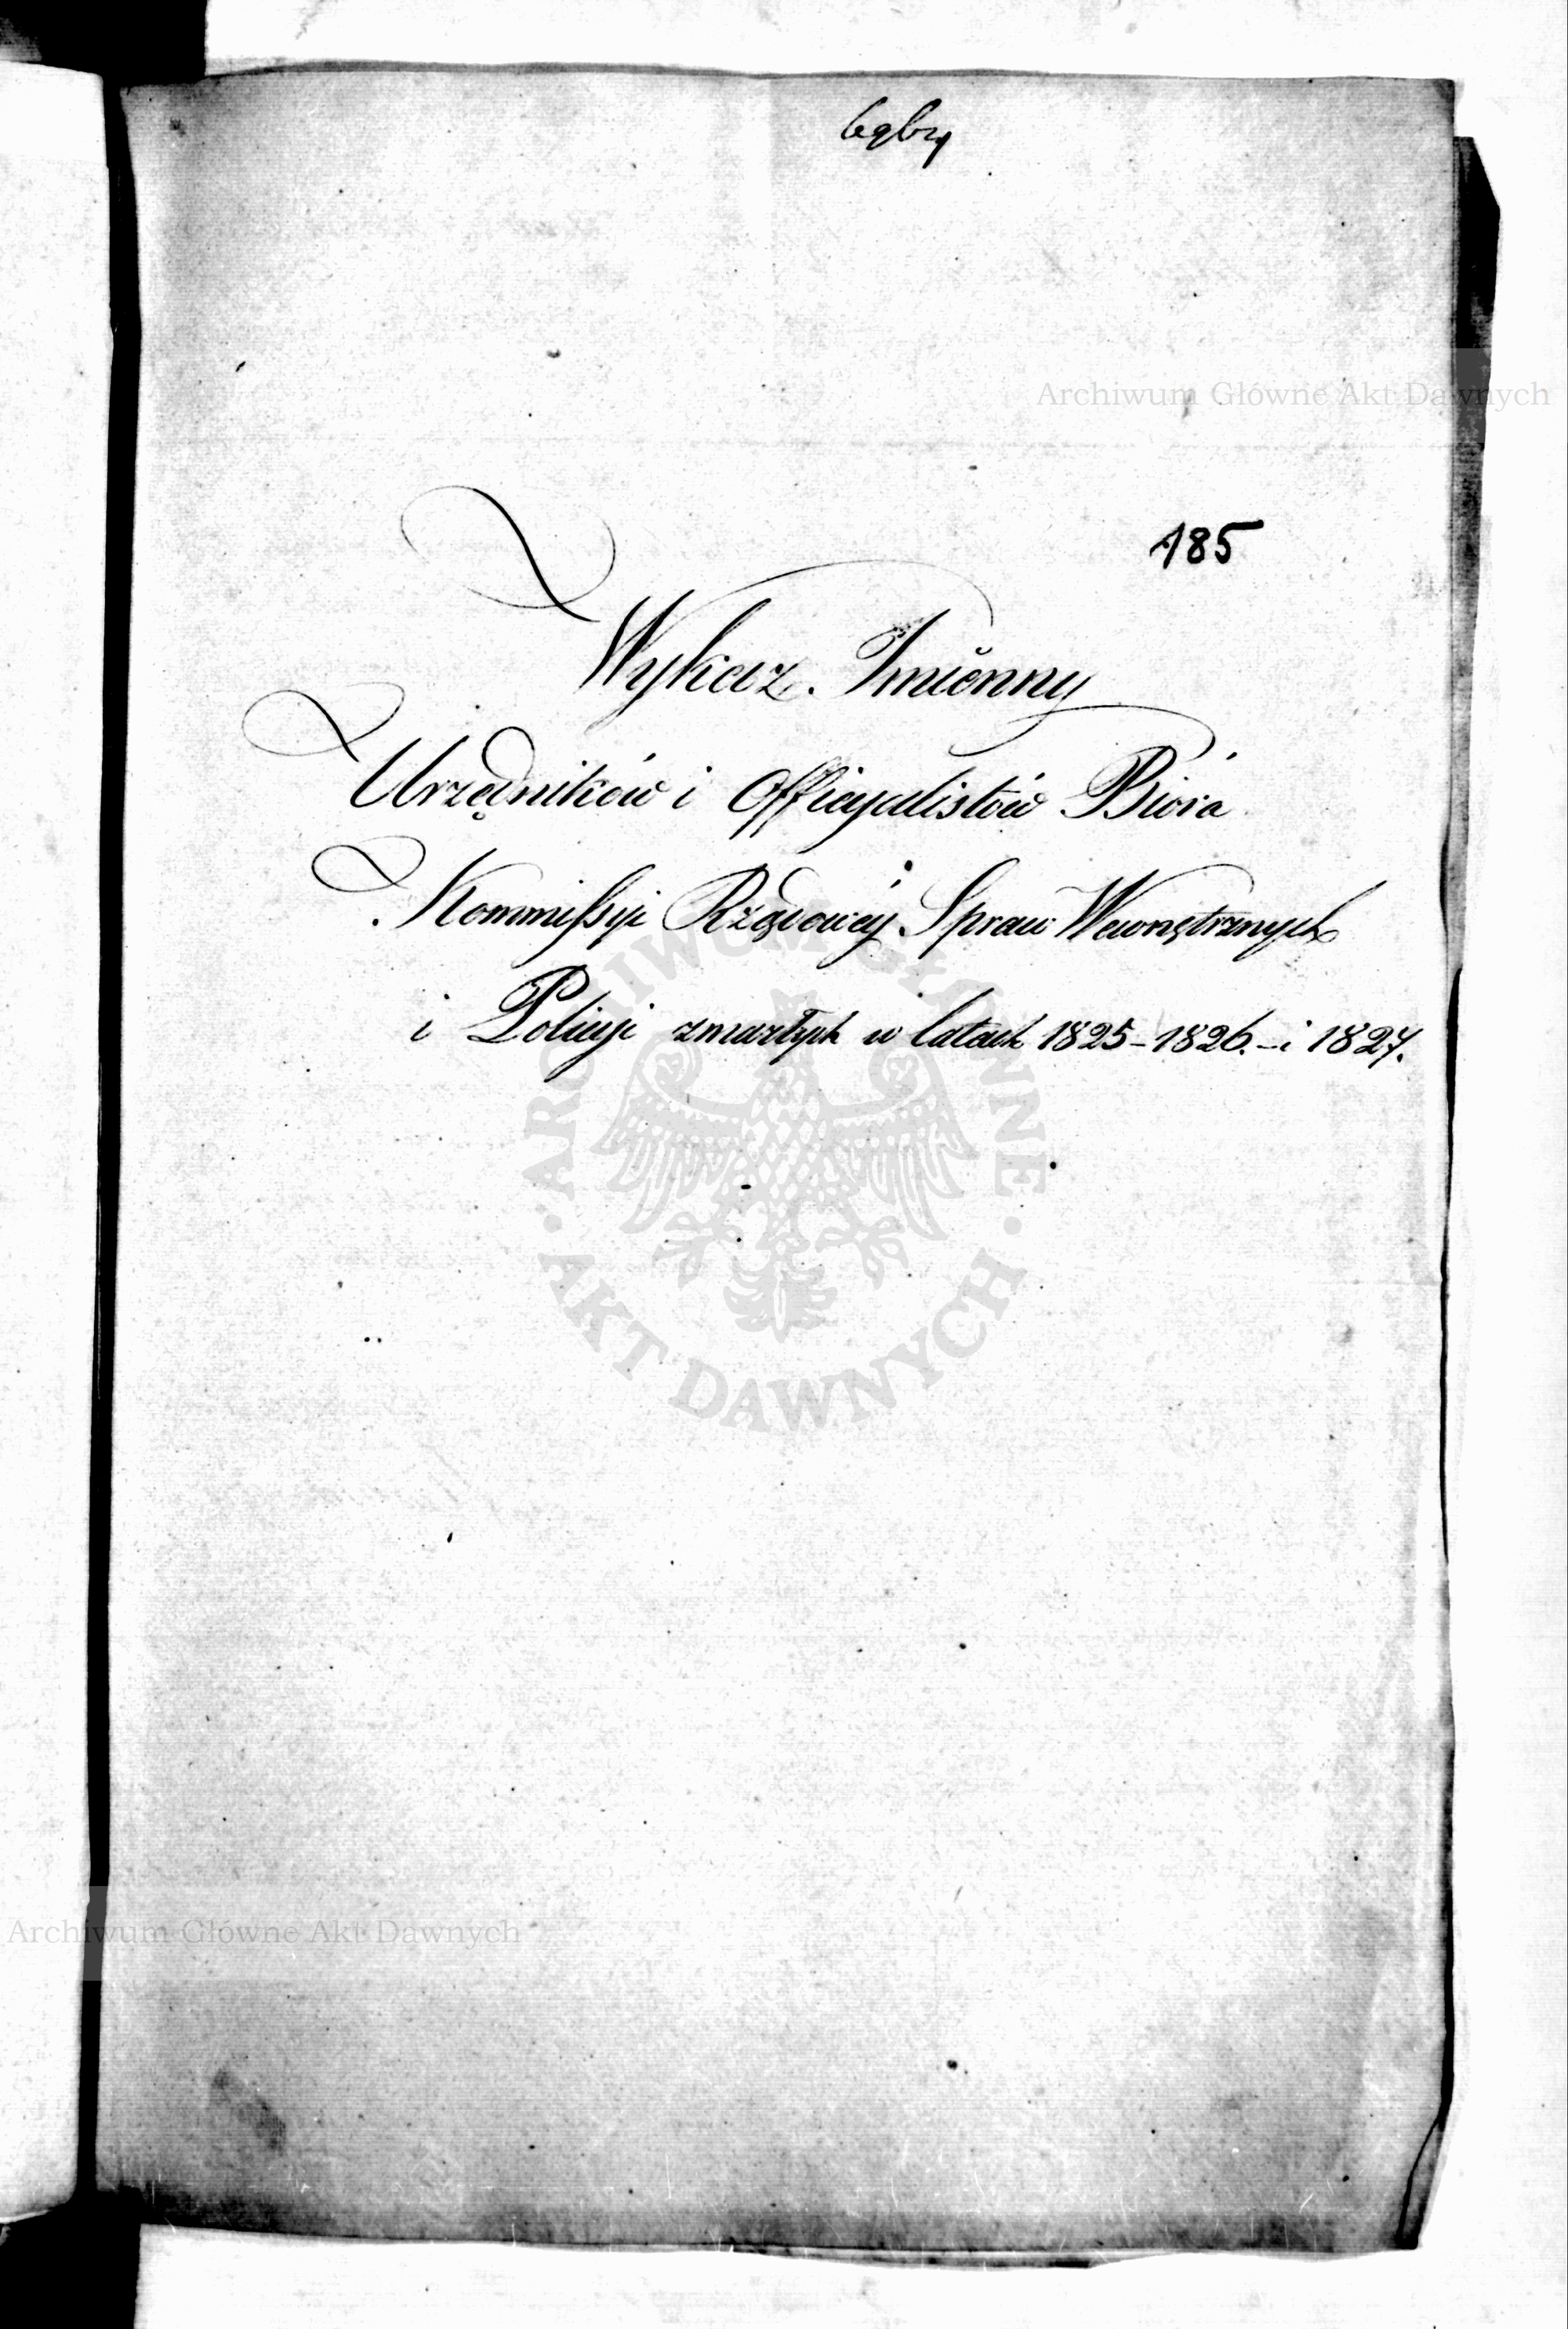 185
Wykaz Imienny
Urzędników i Officyalistów Bióra
Kommissyi Rządowéy Spraw Wewnętrznych
i Policyi zmarłych w latach 1825 – 1826. – i 1827.
Archiwum Główne Akt Dawnych
ARCHIWUM GŁÓWNE
· AKT DAWNYCH ·
Archiwum Główne Akt Dawnych